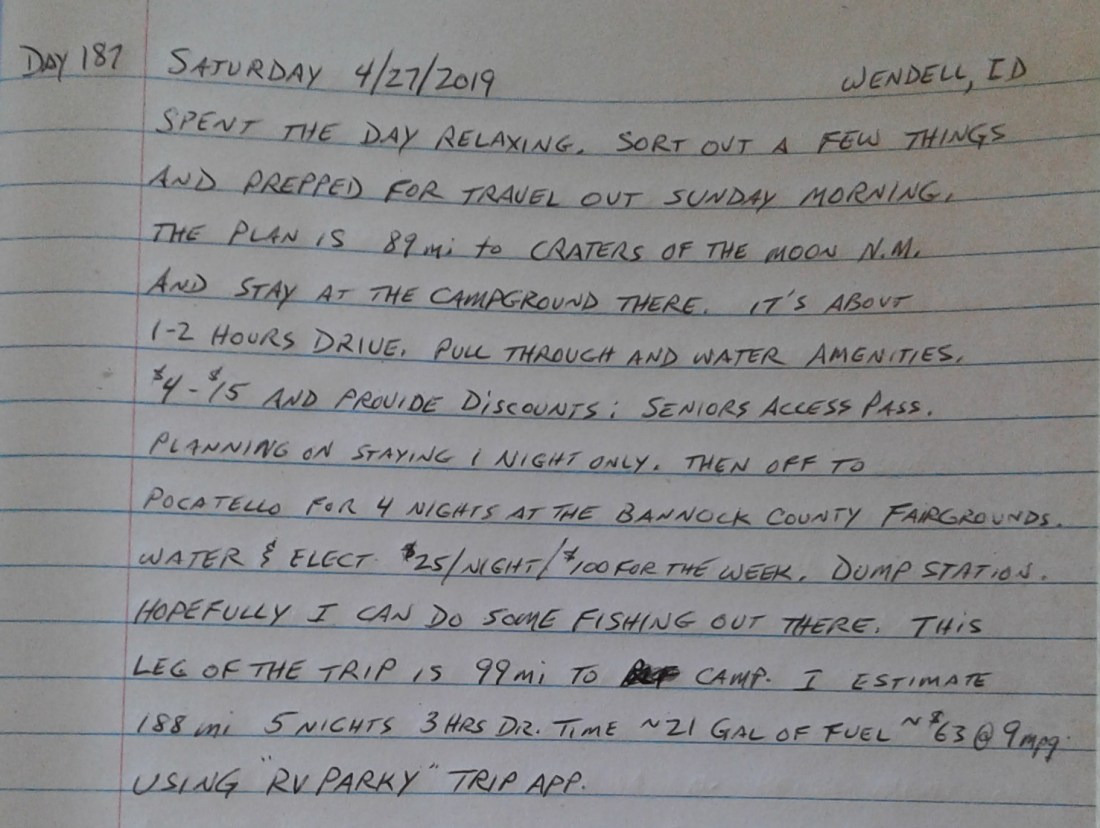 DAY 187 SATURDAY 4/27/2019 WENDELL, ID
SPENT THE DAY RELAXING. SORT OUT A FEW THINGS
AND PREPPED FOR TRAVEL OUT SUNDAY MORNING.
THE PLAN IS 89 mi to CRATERS OF THE MOON N.M.
AND STAY AT THE CAMPGROUND THERE. IT'S ABOUT
1-2 HOURS DRIVE. PULL THROUGH AND WATER AMENITIES.
$4-$15 AND PROVIDE DISCOUNTS: SENIORS ACCESS PASS.
PLANNING ON STAYING 1 NIGHT ONLY. THEN OFF TO
POCATELLO FOR 4 NIGHTS AT THE BANNOCK COUNTY FAIRGROUNDS.
WATER & ELECT. $25/NIGHT/$100 FOR THE WEEK. DUMP STATION.
HOPEFULLY I CAN DO SOME FISHING OUT THERE. THIS
LEG OF THE TRIP IS 99 mi TO CAMP. I ESTIMATE
188 mi 5 NIGHTS 3 HRS DR. TIME ~21 GAL OF FUEL ~$63 @ 9mpg.
USING "RV PARKY" TRIP APP.